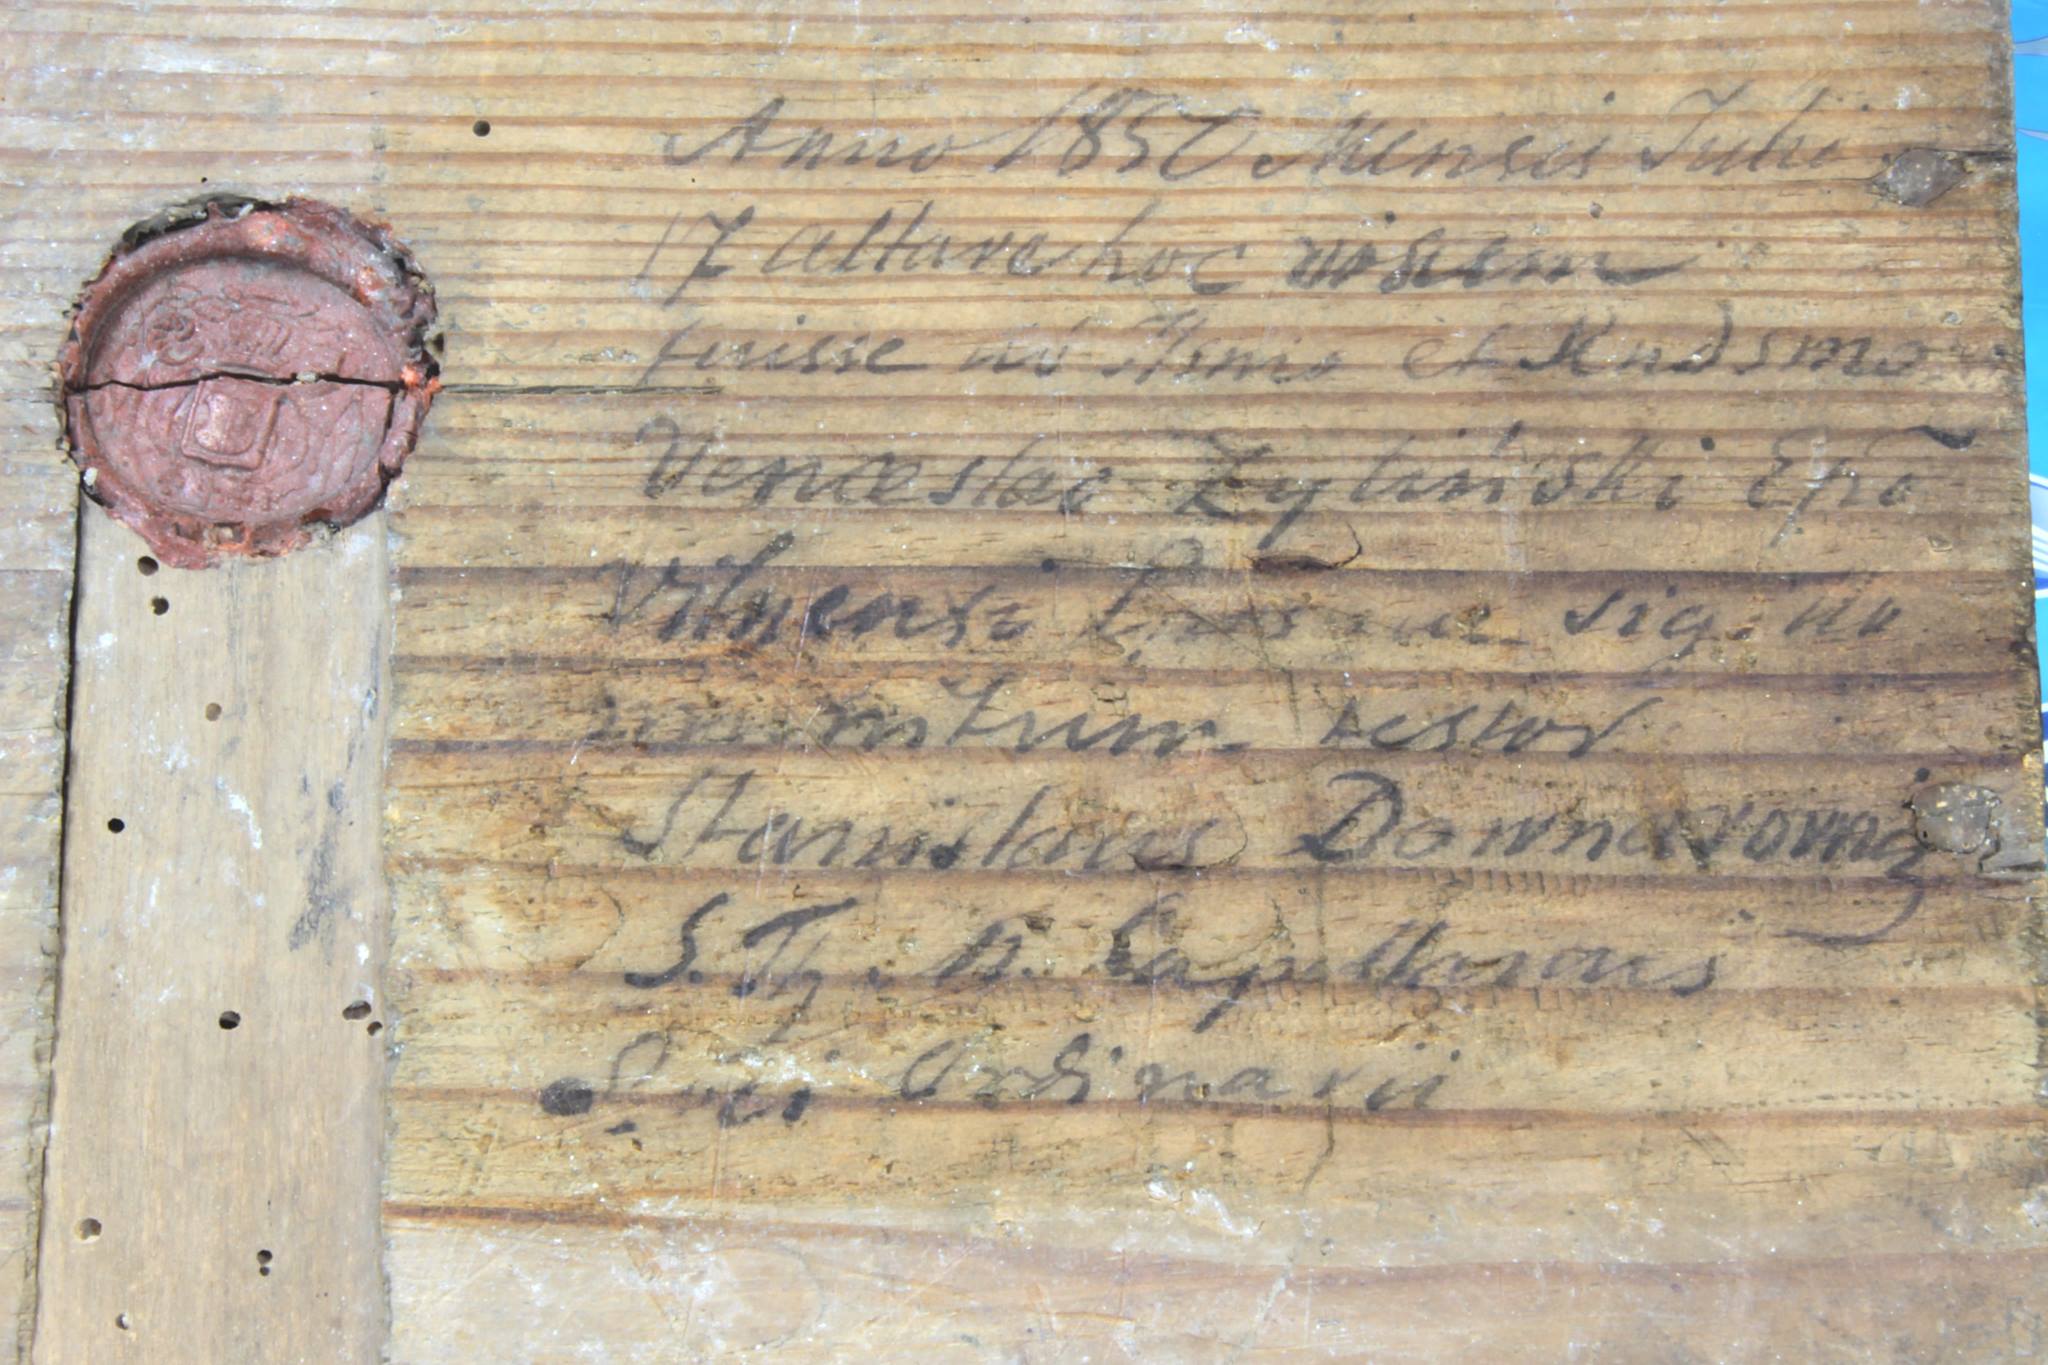 Anno 1850 Mensis Julii
17 altare hoc visum
fuisse ab Illsmo et Rndsmo
Venceslao Żyliński Epō
Vilnensi sig
testor
Stanislaus
S. Th. Capellanus
Ordinarii